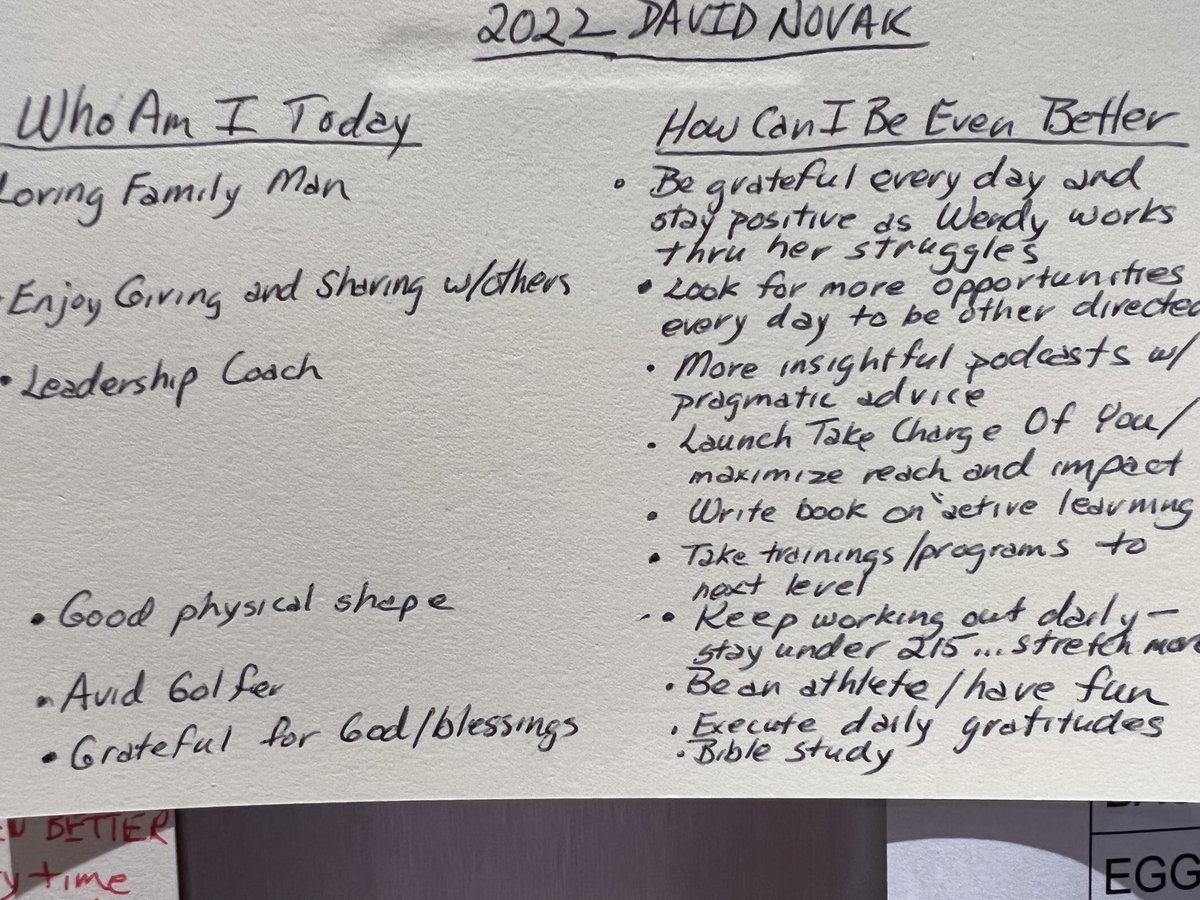 2022 DAVID NOVAK
Who Am I Today
Loving Family Man
• Enjoy Giving and Sharing w/others
• Leadership Coach
• Good physical shape
• Avid Golfer
• Grateful for God/blessings
How Can I Be Even Better
• Be grateful every day and
stay positive as Wendy works
thru her struggles
• Look for more opportunities
every day to be other directed
• More insightful podcasts w/
pragmatic advice
• Launch Take Charge Of You/
maximize reach and impact
• Write book on "active learning
• Take trainings/programs to
next level
• Keep working out daily—
stay under 215... stretch more
• Be an athlete/have fun
• Execute daily gratitudes
• Bible study
BETTER
time
EGG